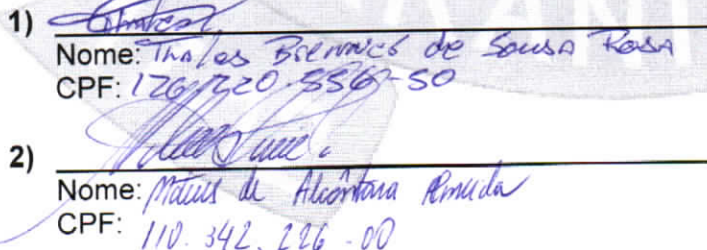 1)
Nome: Thales Brennes de Sousa Rosa
CPF: 126.220.556-50
2)
Nome: Mateus de Alcântara Almeida
CPF: 110.342.226-00